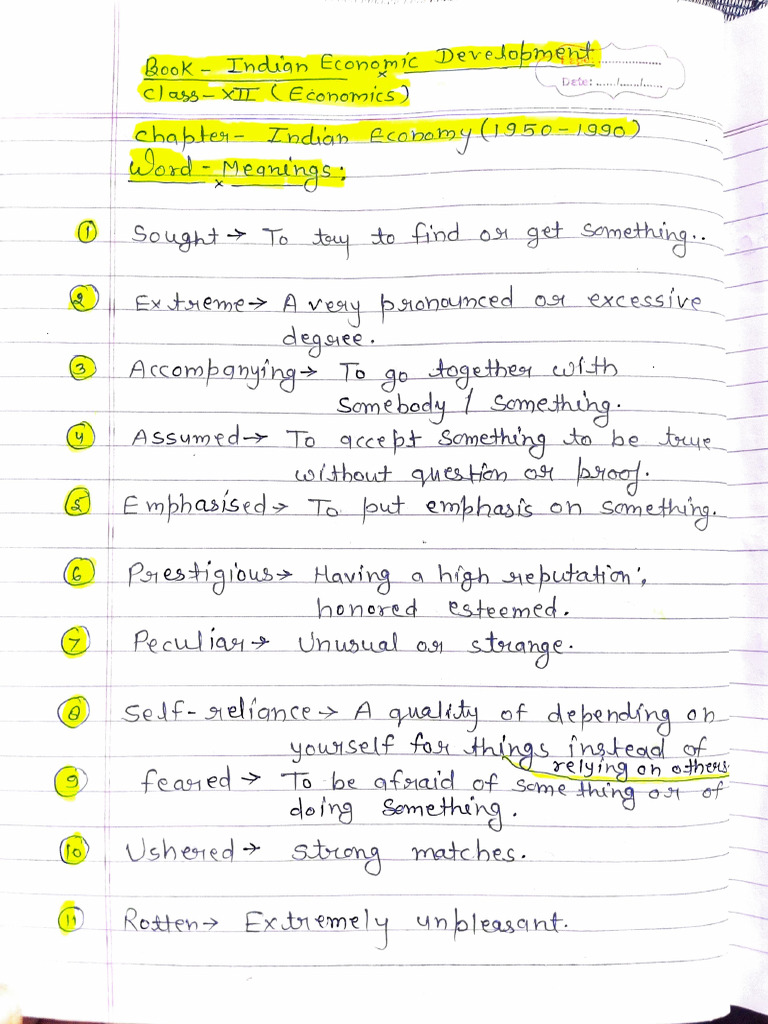 Book - Indian Economic Development
Date: ....../....../......
Class-XII (Economics)
Chapter- Indian Economy (1950-1990)
Word-Meanings:
① Sought → To try to find or get something..
② Extreme → A very pronounced or excessive
degree.
③ Accompanying → To go together with
somebody / something.
④ Assumed → To accept something to be true
without question or proof.
⑤ Emphasised → To put emphasis on something.
⑥ Prestigious → Having a high reputation;
honored esteemed.
⑦ Peculiar → Unusual or strange.
⑧ Self-reliance → A quality of depending on
yourself for things instead of
relying on others.
⑨ feared → To be afraid of some thing or of
doing something.
⑩ Ushered → strong matches.
⑪ Rotten → Extremely unpleasant.